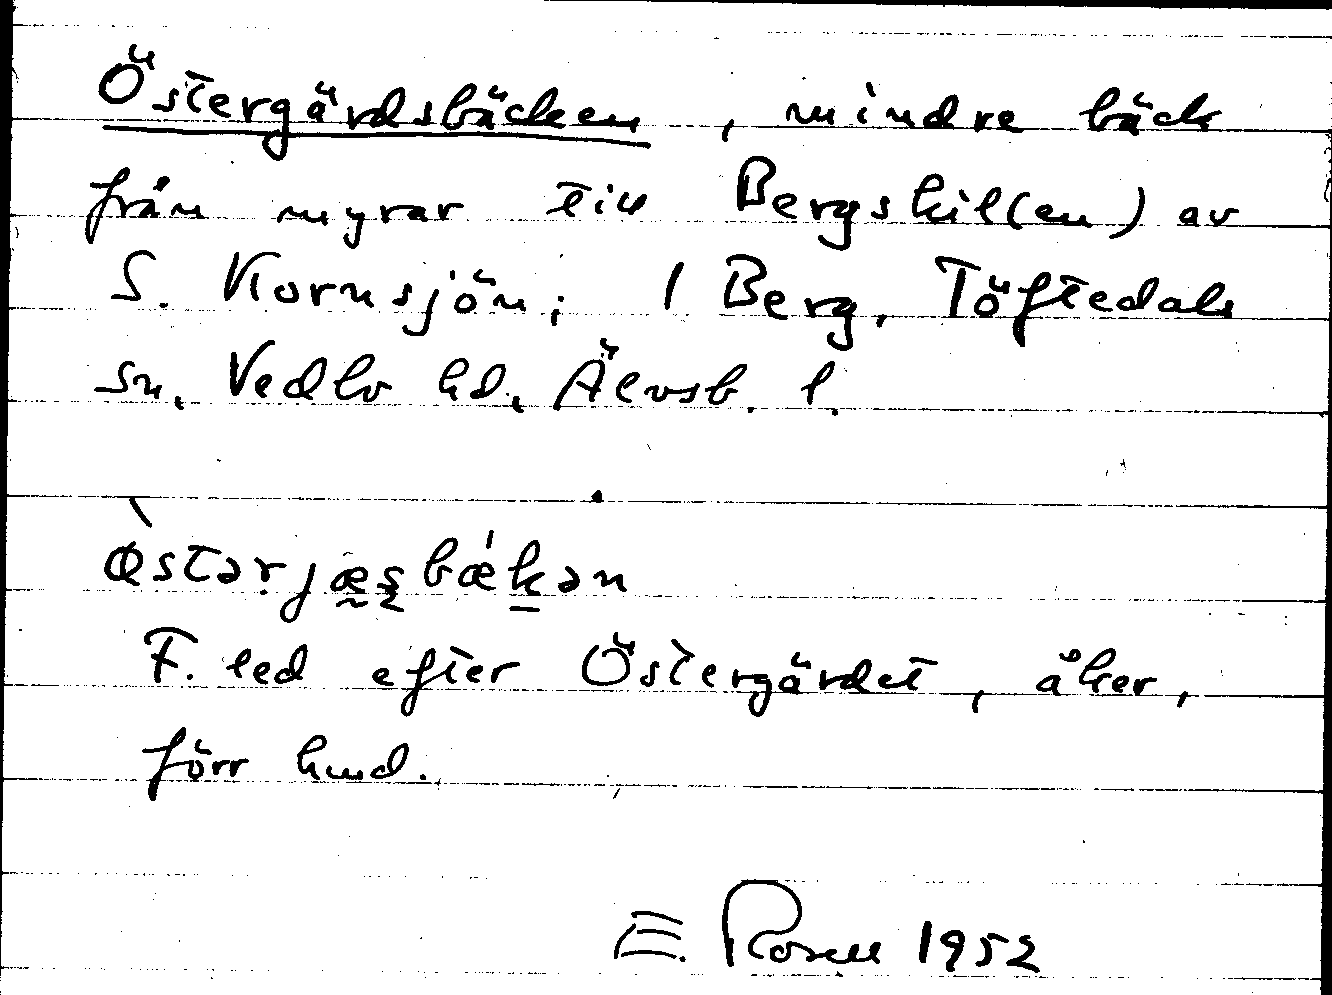 Östergärdsbäcken, mindre bäck
från myrar till Bergskil(en) av
S. Kornsjön; 1 Berg, Töftedals
sn, Vedbo hd, Älvsb. l.
Ø̀stərjæʂbǽkən
F. led efter Östergärdet, åker,
förr hmd.
E. Rosell 1952